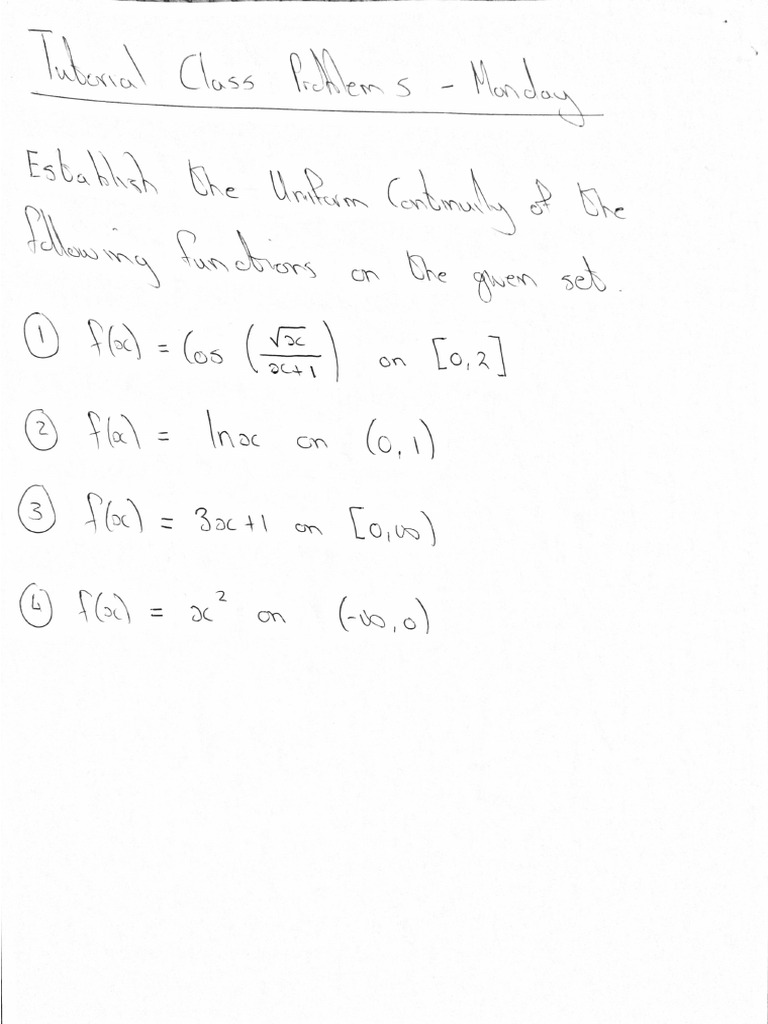 Tutorial Class Problems - Monday
Establish the Uniform Continuity of the
following functions on the given set.
① f(x) = Cos (√x / x+1) on [0,2]
② f(x) = lnx on (0,1)
③ f(x) = 3x+1 on [0,∞)
④ f(x) = x² on (-∞,0)